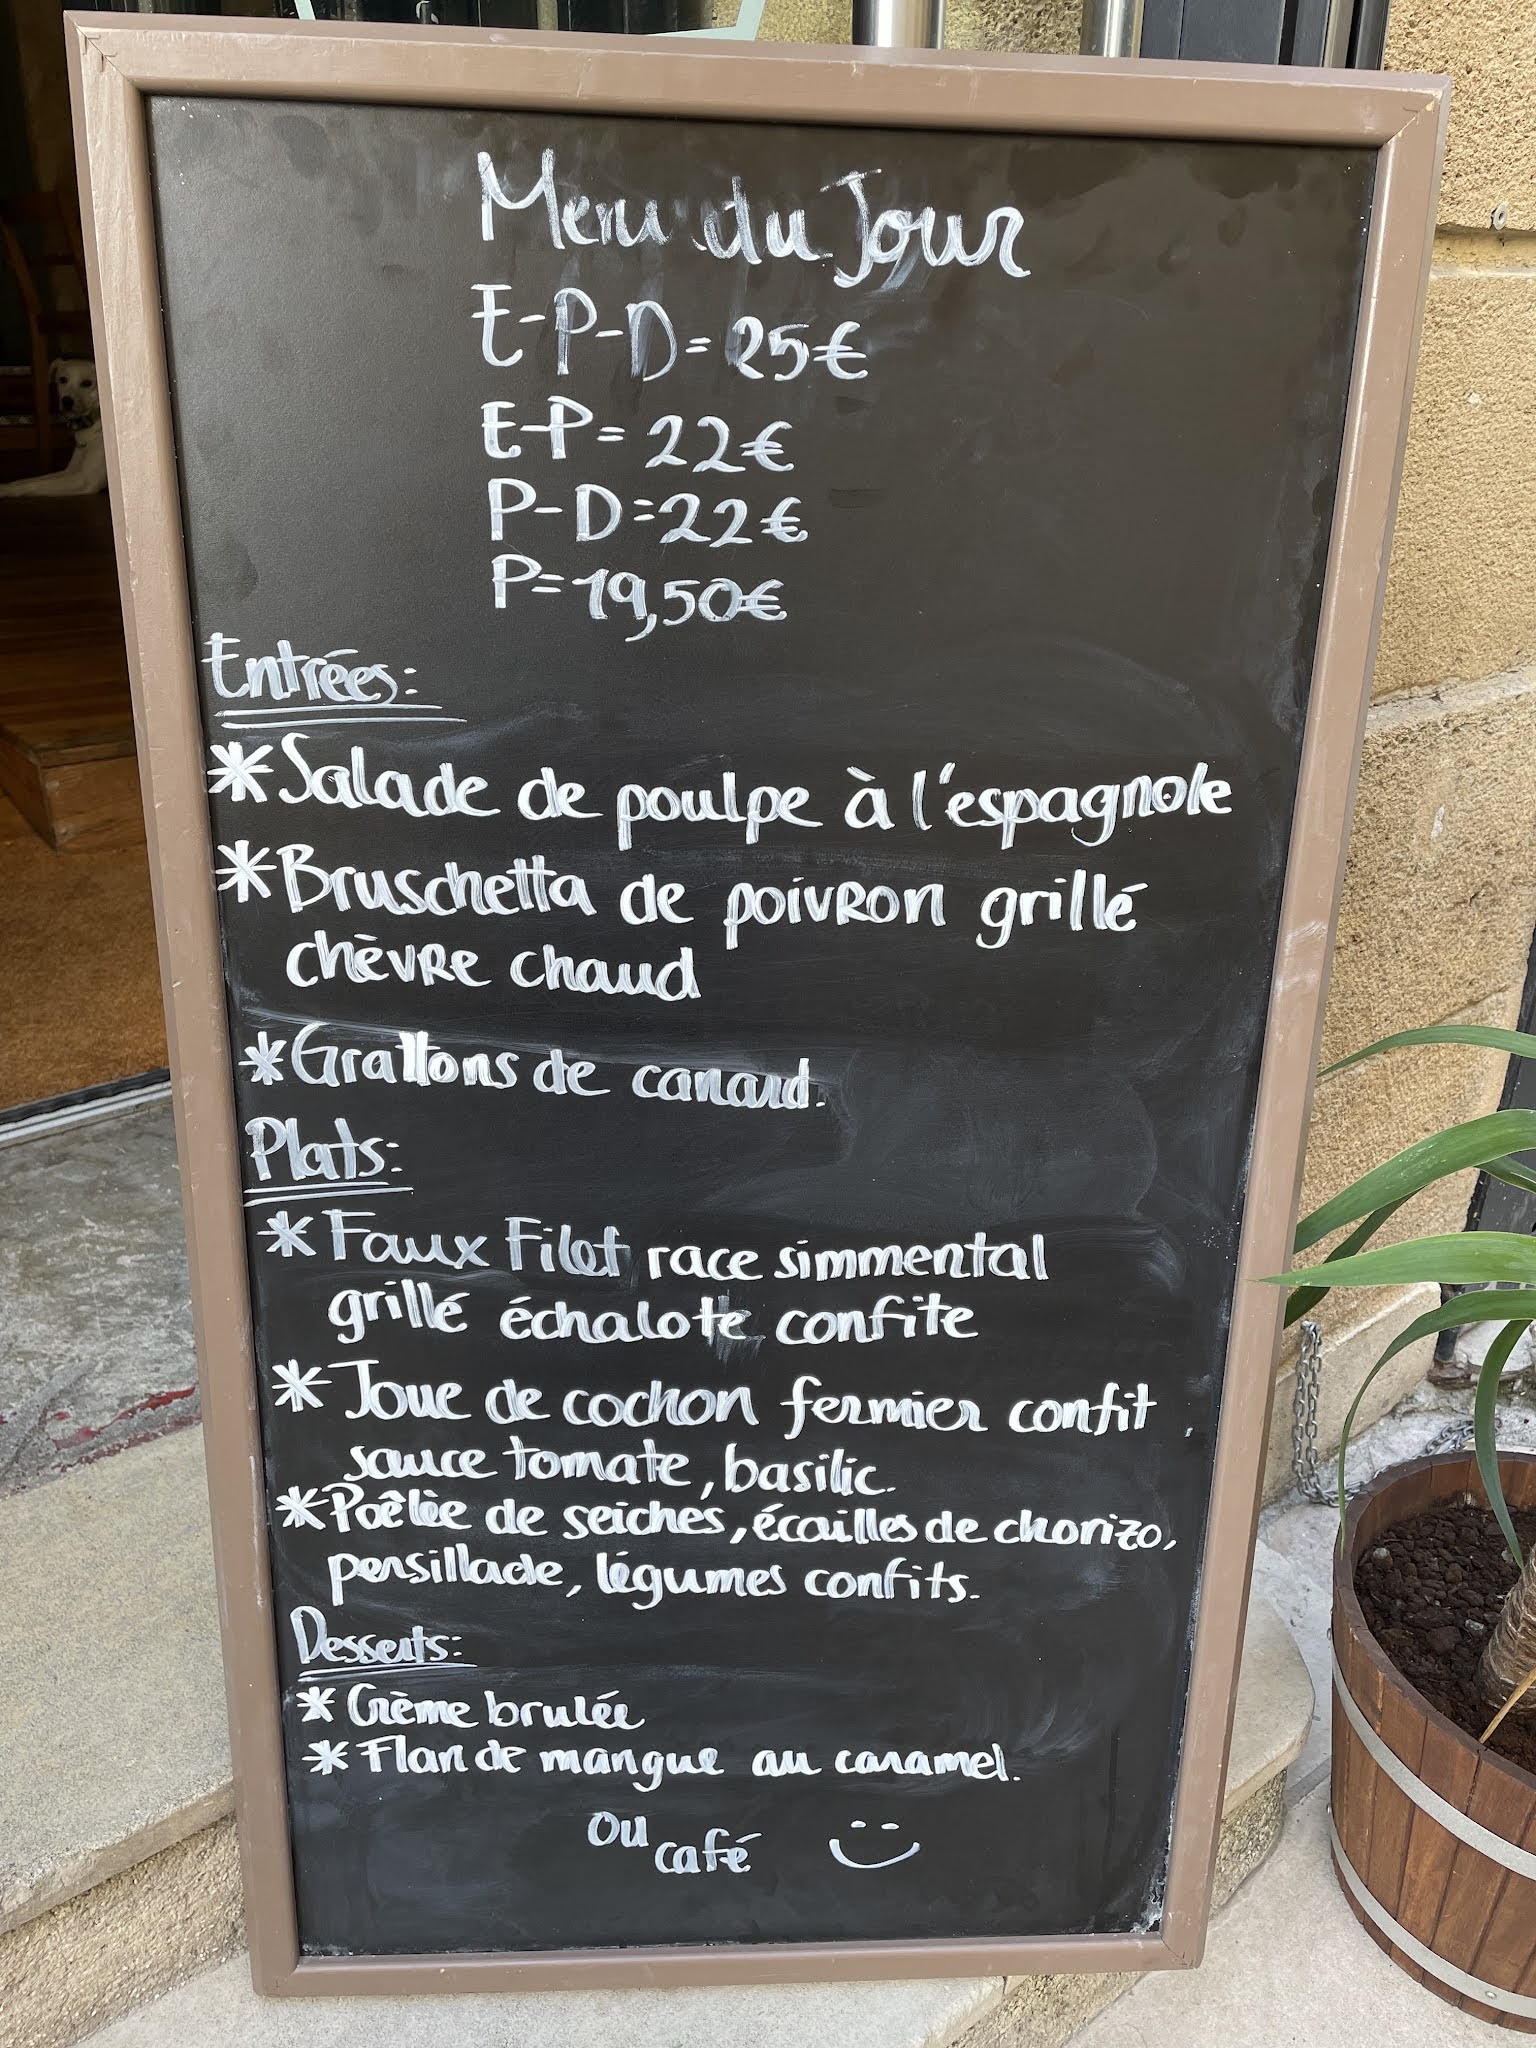 Menu du Jour
E-P-D= 25€
E-P= 22€
P-D=22€
P=19,50€
Entrées:
*Salade de poulpe à l'espagnole
*Bruschetta de poivron grillé
chèvre chaud
*Grattons de canard.
Plats:
*Faux Filet race simmental
grillé échalote confite
*Joue de cochon fermier confit
sauce tomate, basilic.
*Poêlèe de seiches, écailles de chorizo,
persillade, légumes confits.
Desserts:
*Crème brulée
*Flan de mangue au caramel.
ou café